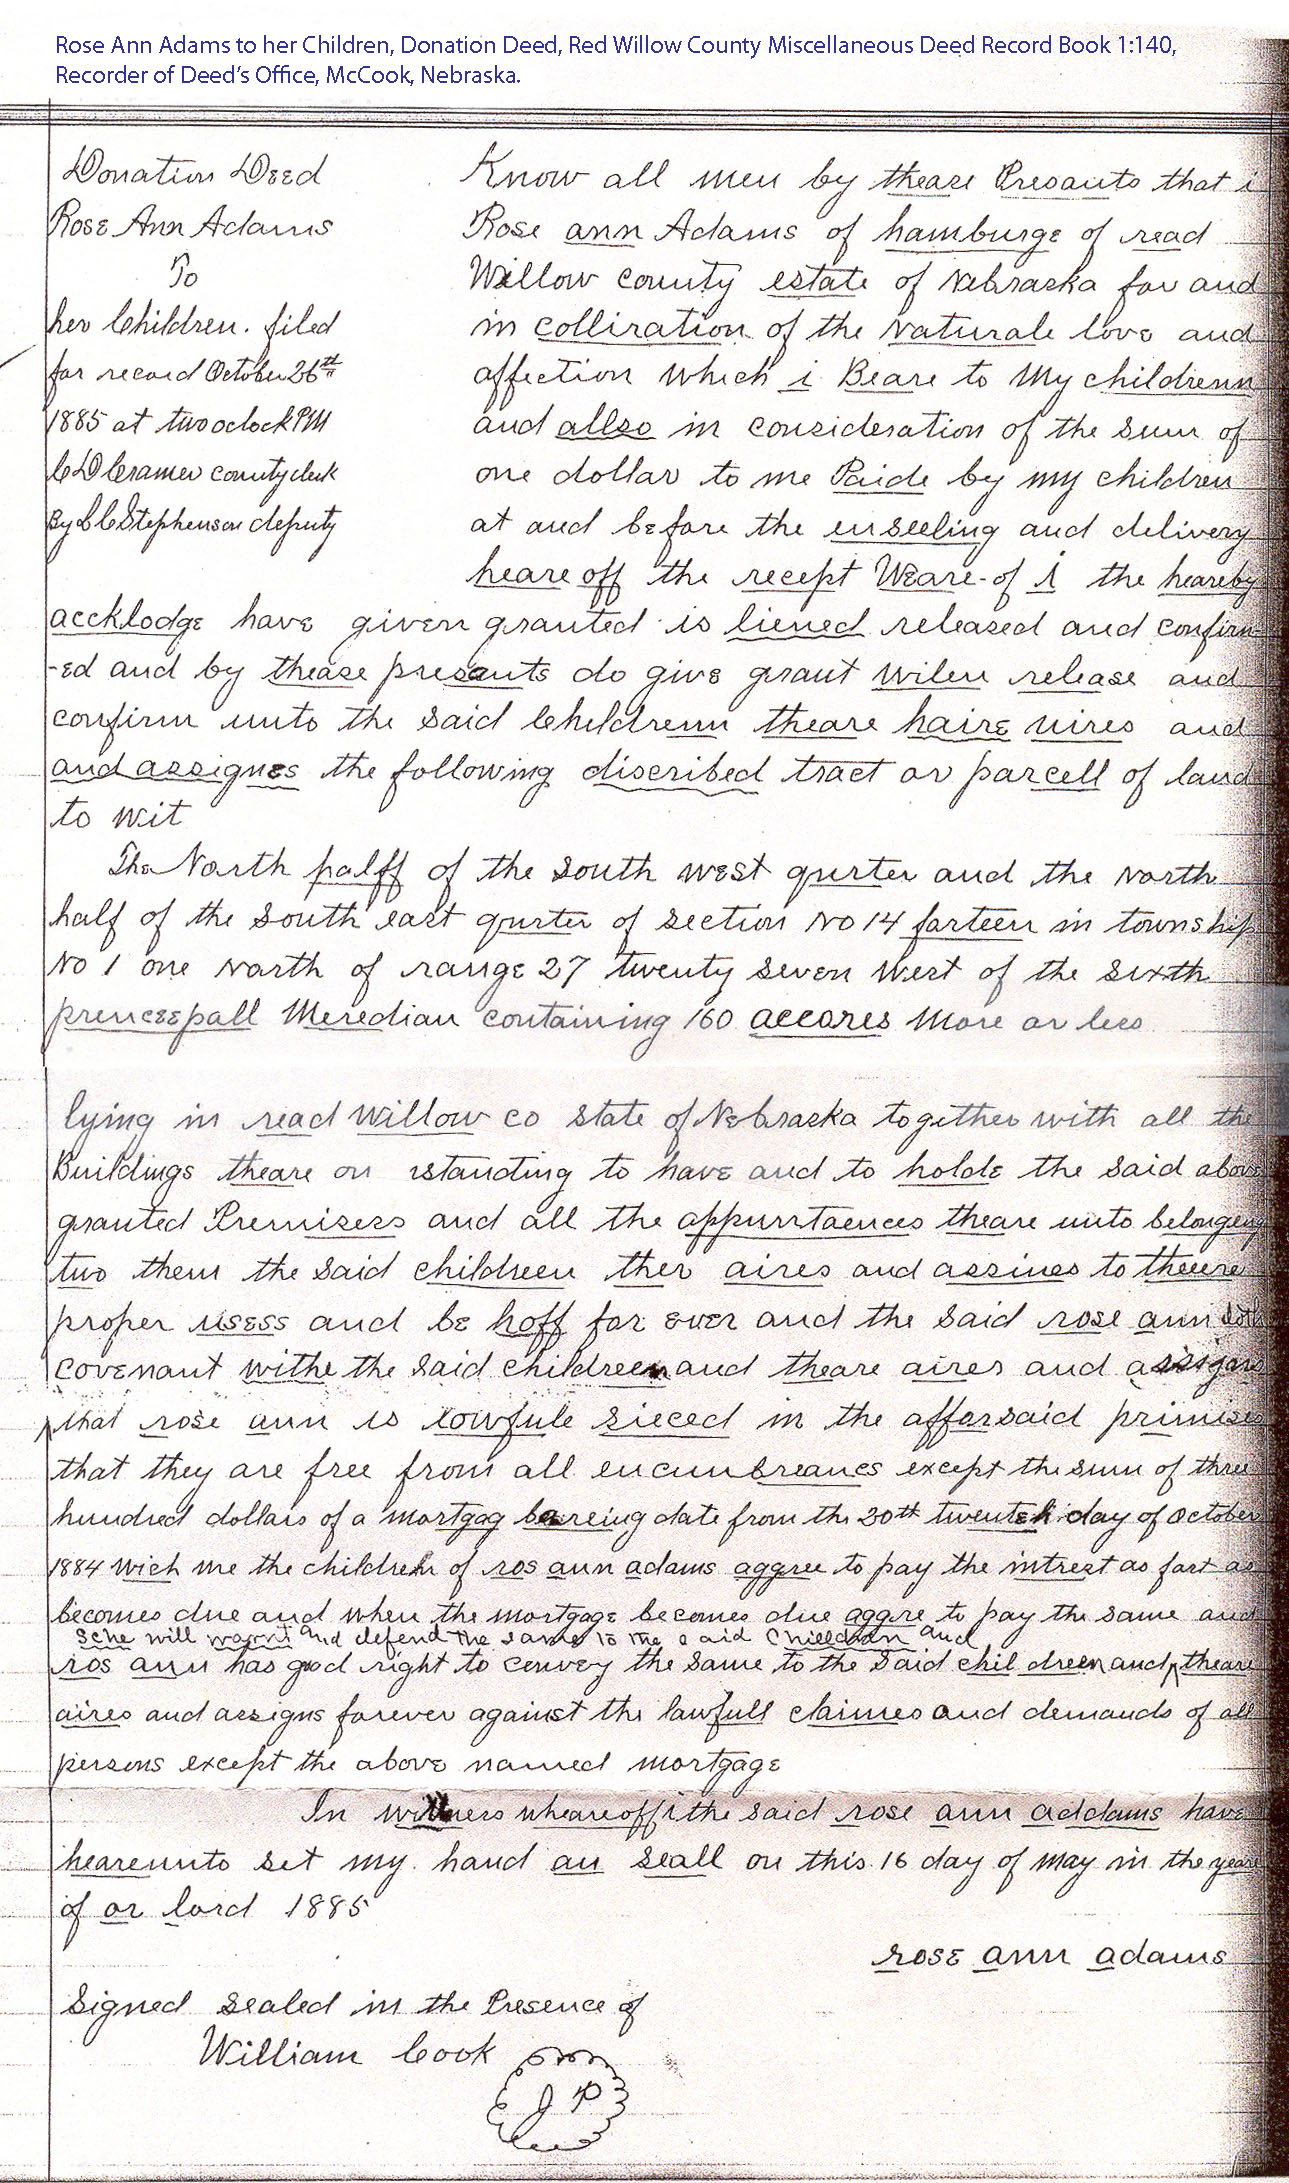 Rose Ann Adams to her Children, Donation Deed, Red Willow County Miscellaneous Deed Record Book 1:140,
Recorder of Deed's Office, McCook, Nebraska.
Donation Deed
Rose Ann Adams
To
her Children. filed
for record October 26th
1885 at two oclock PM
C D Cramer county clerk
By C C Stephenson deputy
Know all men by theare Presants that i
Rose ann Adams of hamburge of read
Willow county estate of Nebraska for and
in colliration of the naturale love and
affection which i Beare to My childrenn
and allso in consideration of the sum of
one dollar to me Paide by my children
at and before the enseeling and delivery
heare off the recept Weare-of i the heareby
accklodge have given granted is liened released and confirm-
-ed and by thease presants do give grant wilen release and
confirm unto the said Childrenn theare haire uires and
and assignes the following discribed tract or parcell of land
to wit
The North palff of the South west qurter and the north
half of the south east qurter of section No 14 farteen in township
No 1 one north of range 27 twenty seven West of the sixth
prenceepall Meredian containing 160 accores More or less
lying in read Willow co state of Nebraska together with all the
Buildings theare on istanding to have and to holde the said above
granted Premisers and all the appurrtaences theare unto belongeng
two them the said childreen ther aires and assines to theere
proper usess and be hoff for ever and the said rose ann doth
covenant withe the said childreen and theare aires and assigns
that rose ann is lowfule sieced in the afforsaid primises
that they are free from all encumbreancs except the sum of three
hundred dollars of a mortgag beareing date from the 20th twenteh day of October
1884 wich we the children of ros ann adams aggree to pay the intrest as fast as
becomes due and when the mortgage becomes due aggre to pay the same and
sche will warnt and defend the same to the said Chieldran and
ros ann has good right to convey the same to the said chil dreen and theare
aires and assigns forever against the lawfull claimes and demands of all
persons except the above named mortgage
In wittners wheareoff i the said rose ann addams have
heareunto set my hand an seall on this 16 day of may in the yeare
of or lord 1885
rose ann adams
Signed Sealed in the Presence of
William Cook
J P